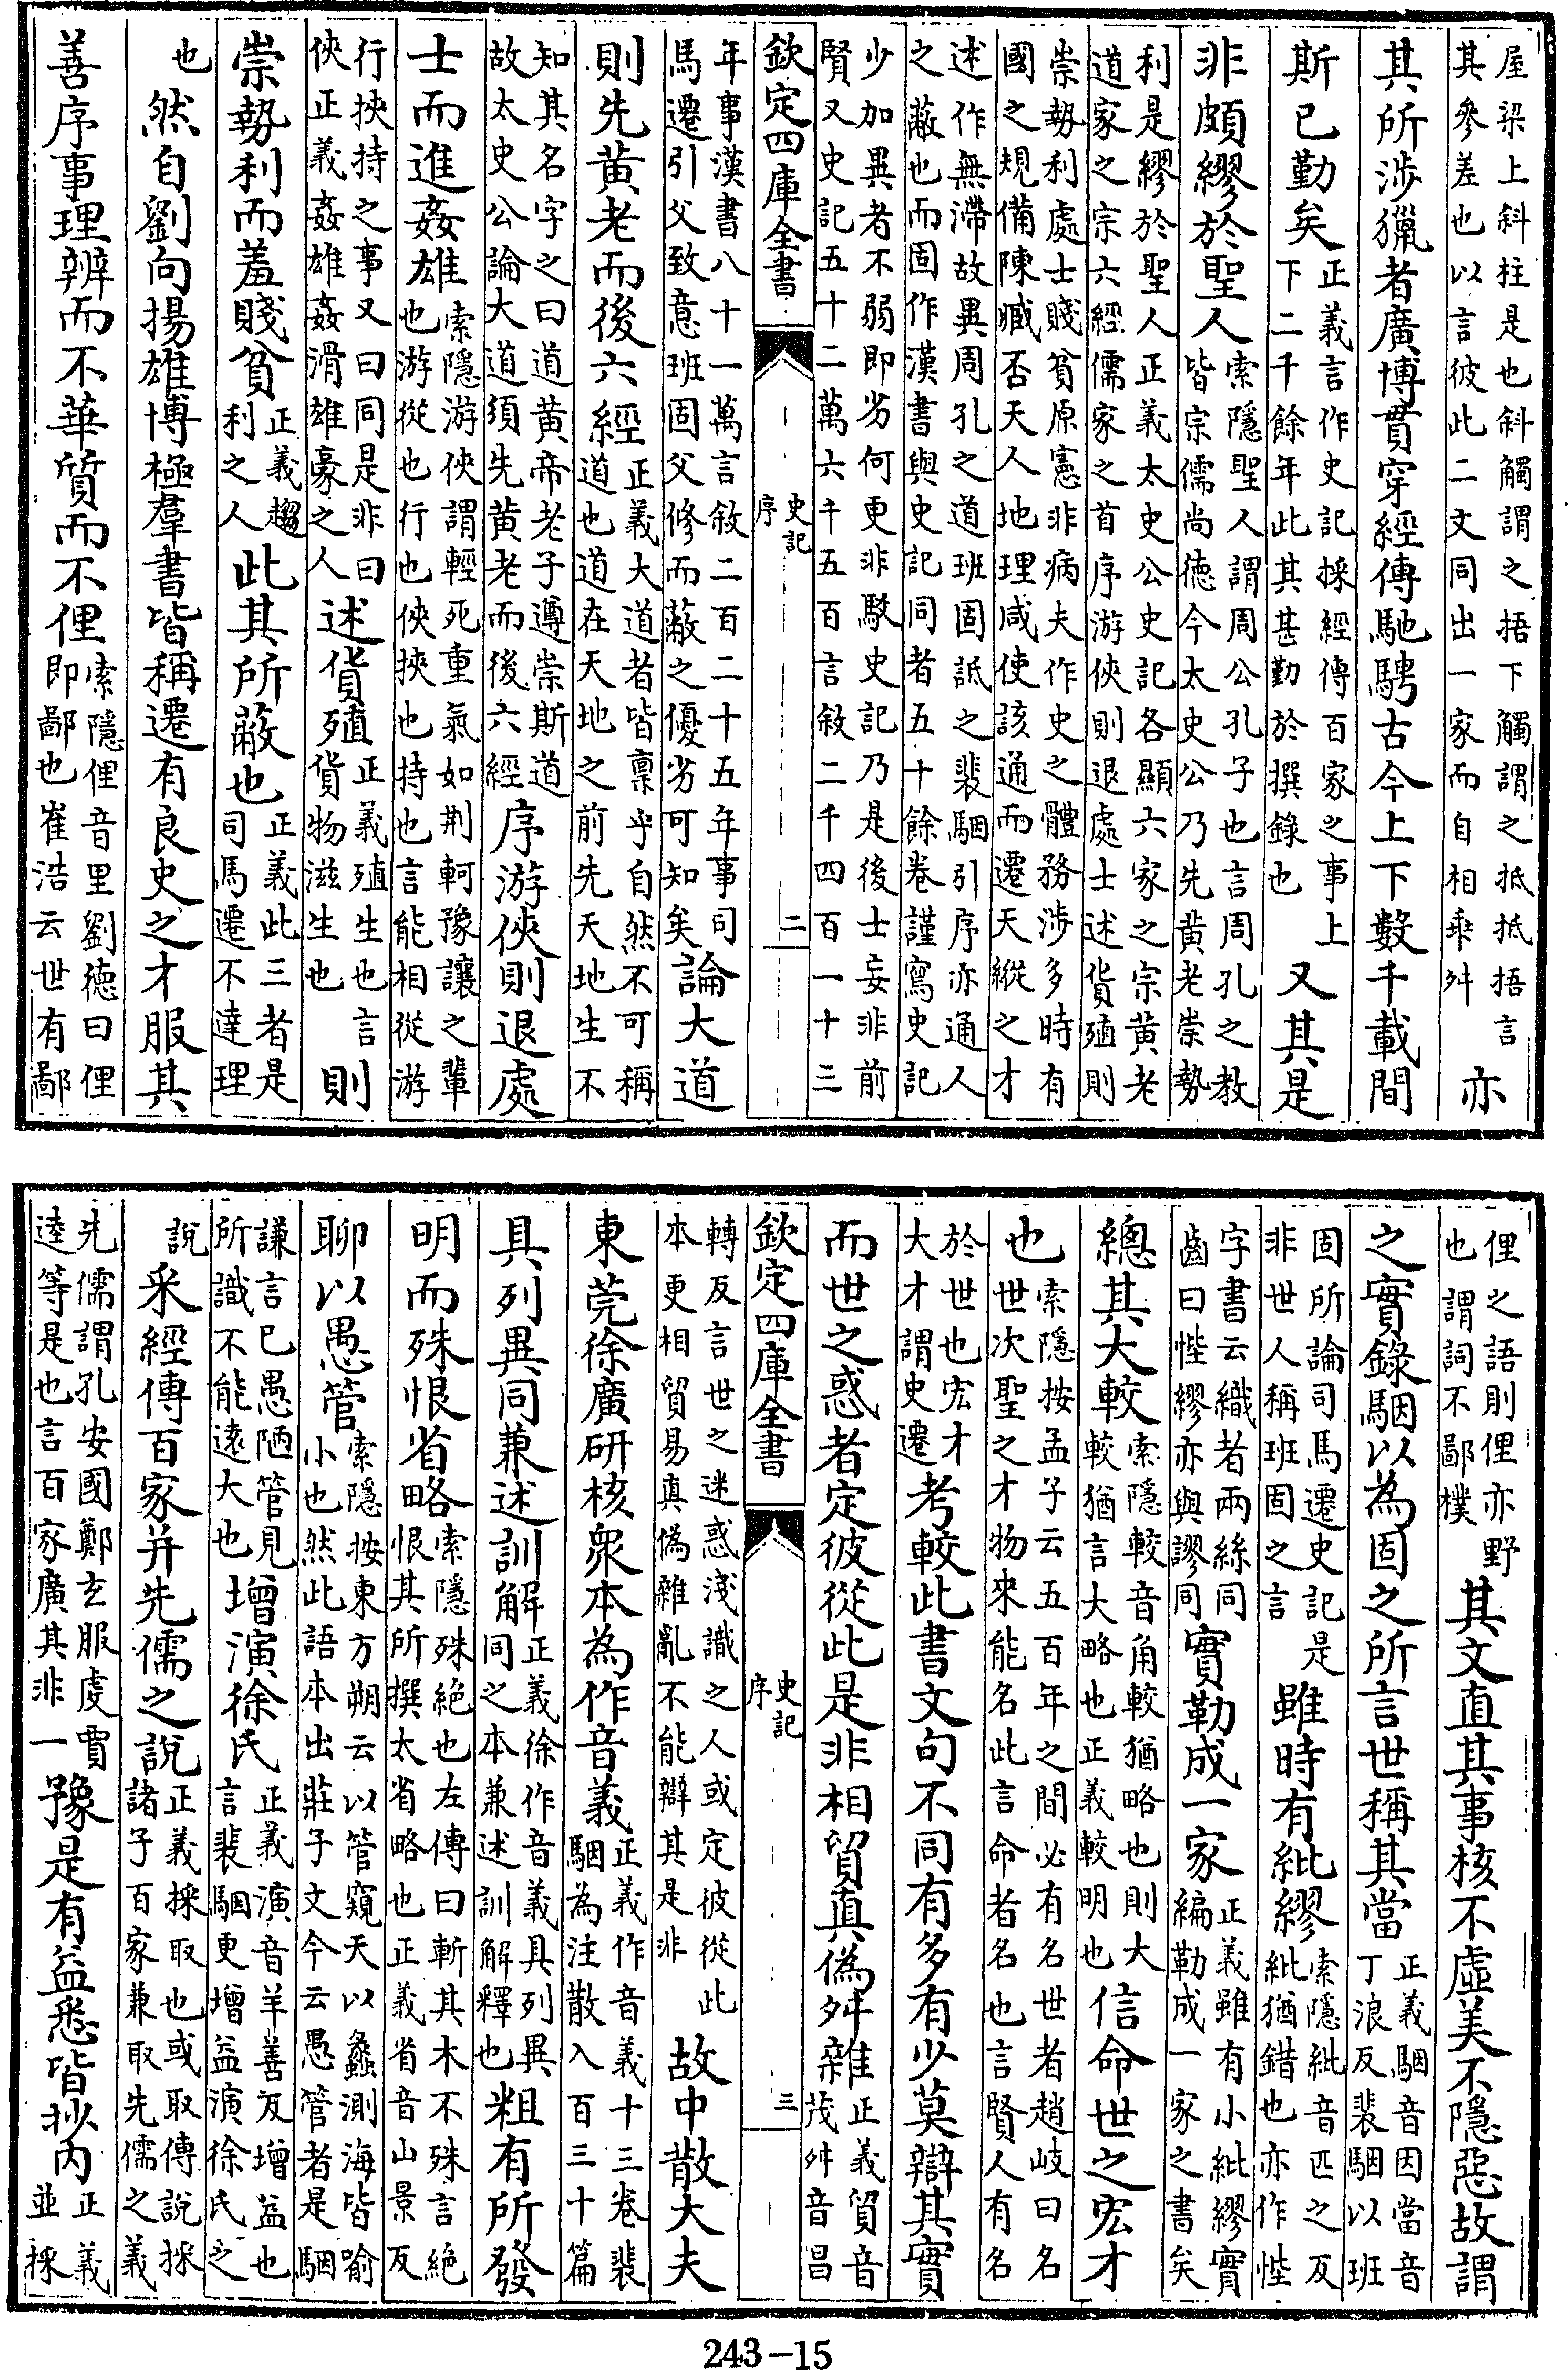 屋梁上斜柱是也斜觸謂之捂下觸謂之抵抵捂言其參差也以言彼此二文同出一家而自相乖舛亦
其所涉獵者廣博貫穿經傳馳騁古今上下數千載間
斯已勤矣正義言作史記採經傳百家之事上下二千餘年此其甚勤於撰錄也又其是
非頗繆於聖人索隱聖人謂周公孔子也言周孔之教皆宗儒尚徳今太史公乃先黄老崇勢
利是繆於聖人正義太史公史記各顯六家之宗黄老道家之宗六經儒家之首序游俠則退處士述貨殖則
崇勢利處士賤貧原憲非病夫作史之體務涉多時有國之規備陳臧否天人地理咸使該通而遷天縱之才
述作無滯故異周孔之道班固詆之裴駰引序亦通人之蔽也而固作漢書與史記同者五十餘卷謹寫史記
少加異者不弱即劣何更非駮史記乃是後士妄非前賢又史記五十二萬六千五百言敘二千四百一十三
欽定四庫全書 史記序 二
年事漢書八十一萬言敘二百二十五年事司馬遷引父致意班固父修而蔽之優劣可知矣論大道
則先黄老而後六經正義大道者皆稟乎自然不可稱道也道在天地之前先天地生不
知其名字之曰道黄帝老子遵崇斯道故太史公論大道須先黄老而後六經序游俠則退處
士而進姦雄索隱游俠謂輕死重氣如荆軻豫讓之輩也游從也行也俠挾也持也言能相從游
行挾持之事又曰同是非曰俠正義姦雄姦滑雄豪之人述貨殖正義殖生也言貨物滋生也則
崇勢利而羞賤貧正義趨利之人此其所蔽也正義此三者是司馬遷不達理
也然自劉向揚雄博極羣書皆稱遷有良史之才服其
善序事理辨而不華質而不俚索隱俚音里劉徳曰俚即鄙也崔浩云世有鄙
俚之語則俚亦野也謂詞不鄙樸其文直其事核不虛美不隱惡故謂
之實錄駰以為固之所言世稱其當正義駰音因當音丁浪反裴駰以班
固所論司馬遷史記是非世人稱班固之言雖時有紕繆索隱紕音匹之反紕猶錯也亦作悂
字書云織者兩絲同齒曰悂繆亦與謬同實勒成一家正義雖有小紕繆實編勒成一家之書矣
總其大較索隱較音角較猶略也則大較猶言大略也正義較明也信命世之宏才
也索隱按孟子云五百年之間必有名世者趙岐曰名世次聖之才物來能名此言命者名也言賢人有名
於世也宏才大才謂史遷考較此書文句不同有多有少莫辯其實
而世之惑者定彼從此是非相貿真偽舛雜正義貿音茂舛音昌
欽定四庫全書 史記序 三
轉反言世之迷惑淺識之人或定彼從此本更相貿易真偽雜亂不能辯其是非故中散大夫
東莞徐廣研核衆本為作音義正義作音義十三卷裴駰為注散入百三十篇
具列異同兼述訓解正義徐作音義具列異同之本兼述訓解釋也粗有所發
明而殊恨省略索隱殊絕也左傳曰斬其木不殊言絕恨其所撰太省略也正義省音山景反
聊以愚管索隱按東方朔云以管窺天以蠡測海皆喻小也然此語本出莊子文今云愚管者是駰
謙言已愚陋管見所識不能遠大也增演徐氏正義演音羊善反增益也言裴駰更增益演徐氏之
說采經傳百家并先儒之說正義採取也或取傳說採諸子百家兼取先儒之義
先儒謂孔安國鄭玄服虔賈逵等是也言百家廣其非一豫是有益悉皆抄內正義並採
243-15